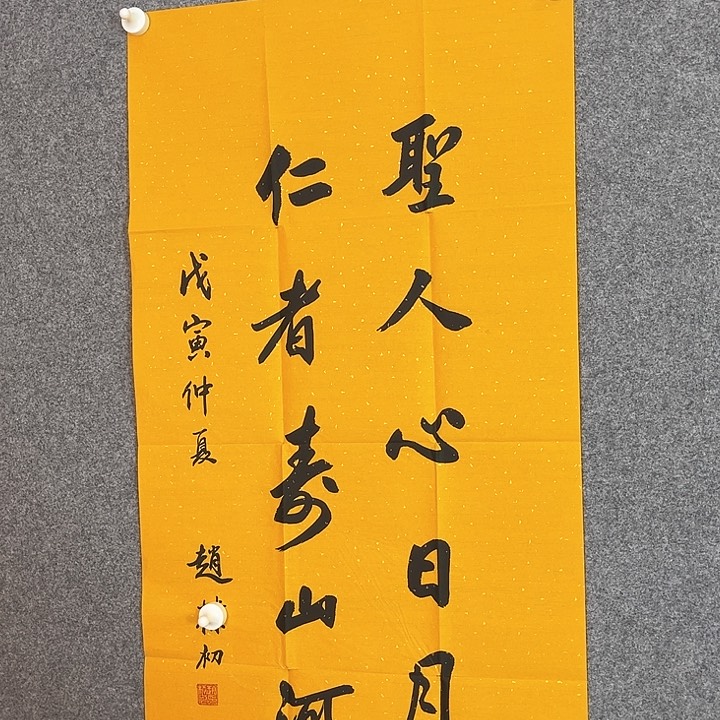 聖人心日月
仁者寿山河
戊寅仲夏
趙樸初